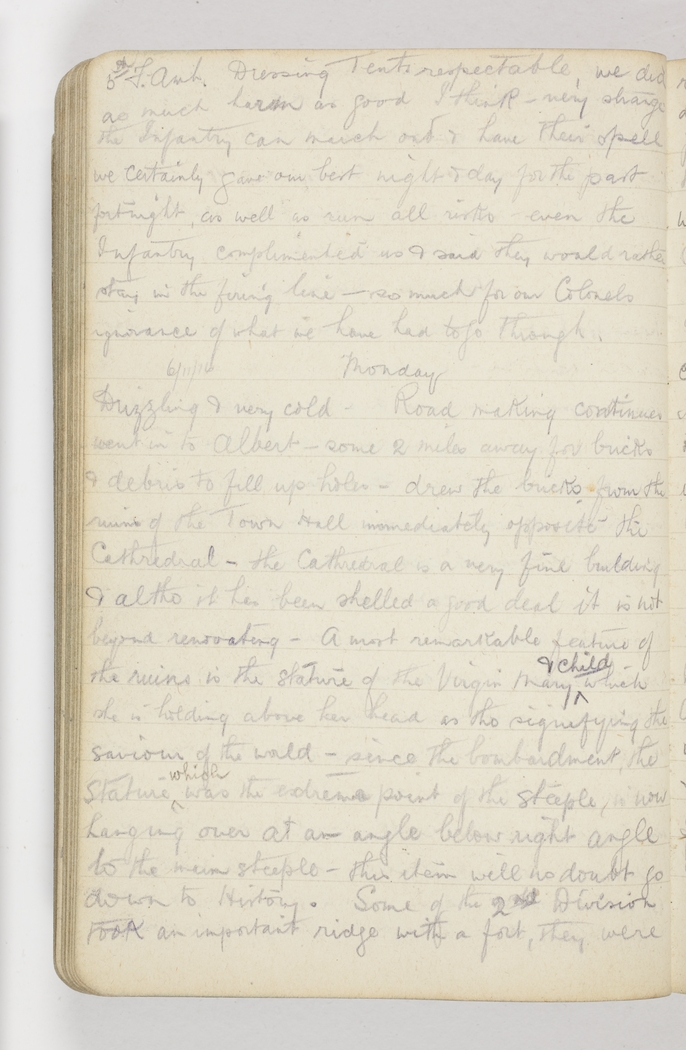 5th F. Amb. Dressing Tents respectable, we did
as much harm as good I think - very strange
the Infantry can march out & have their spell
we certainly gave our best night & day for the past
fortnight, as well as run all risks - even the
Infantry complimented us & said they would rather
stay in the firing line - so much for our Colonels
ignorance of what we have had to go through.
6/11/16 Monday
Drizzling & very cold - Road making continues
went in to Albert - some 2 miles away for bricks
& debris to fill up holes - drew the bricks from the
ruins of the Town Hall immediately opposite the
Cathedral - the Cathedral is a very fine building
& altho it has been shelled a good deal it is not
beyond renovating - A most remarkable feature of
the ruins is the stature of the Virgin Mary & child which
she is holding above her head as tho signifying the
saviour of the world - since the bombardment, the
Stature which was the extreme point of the steeple, is now
hanging over at an angle below right angle
to the main steeple - this item will no doubt go
down to History. Some of the 2nd Division
took an important ridge with a fort, they were